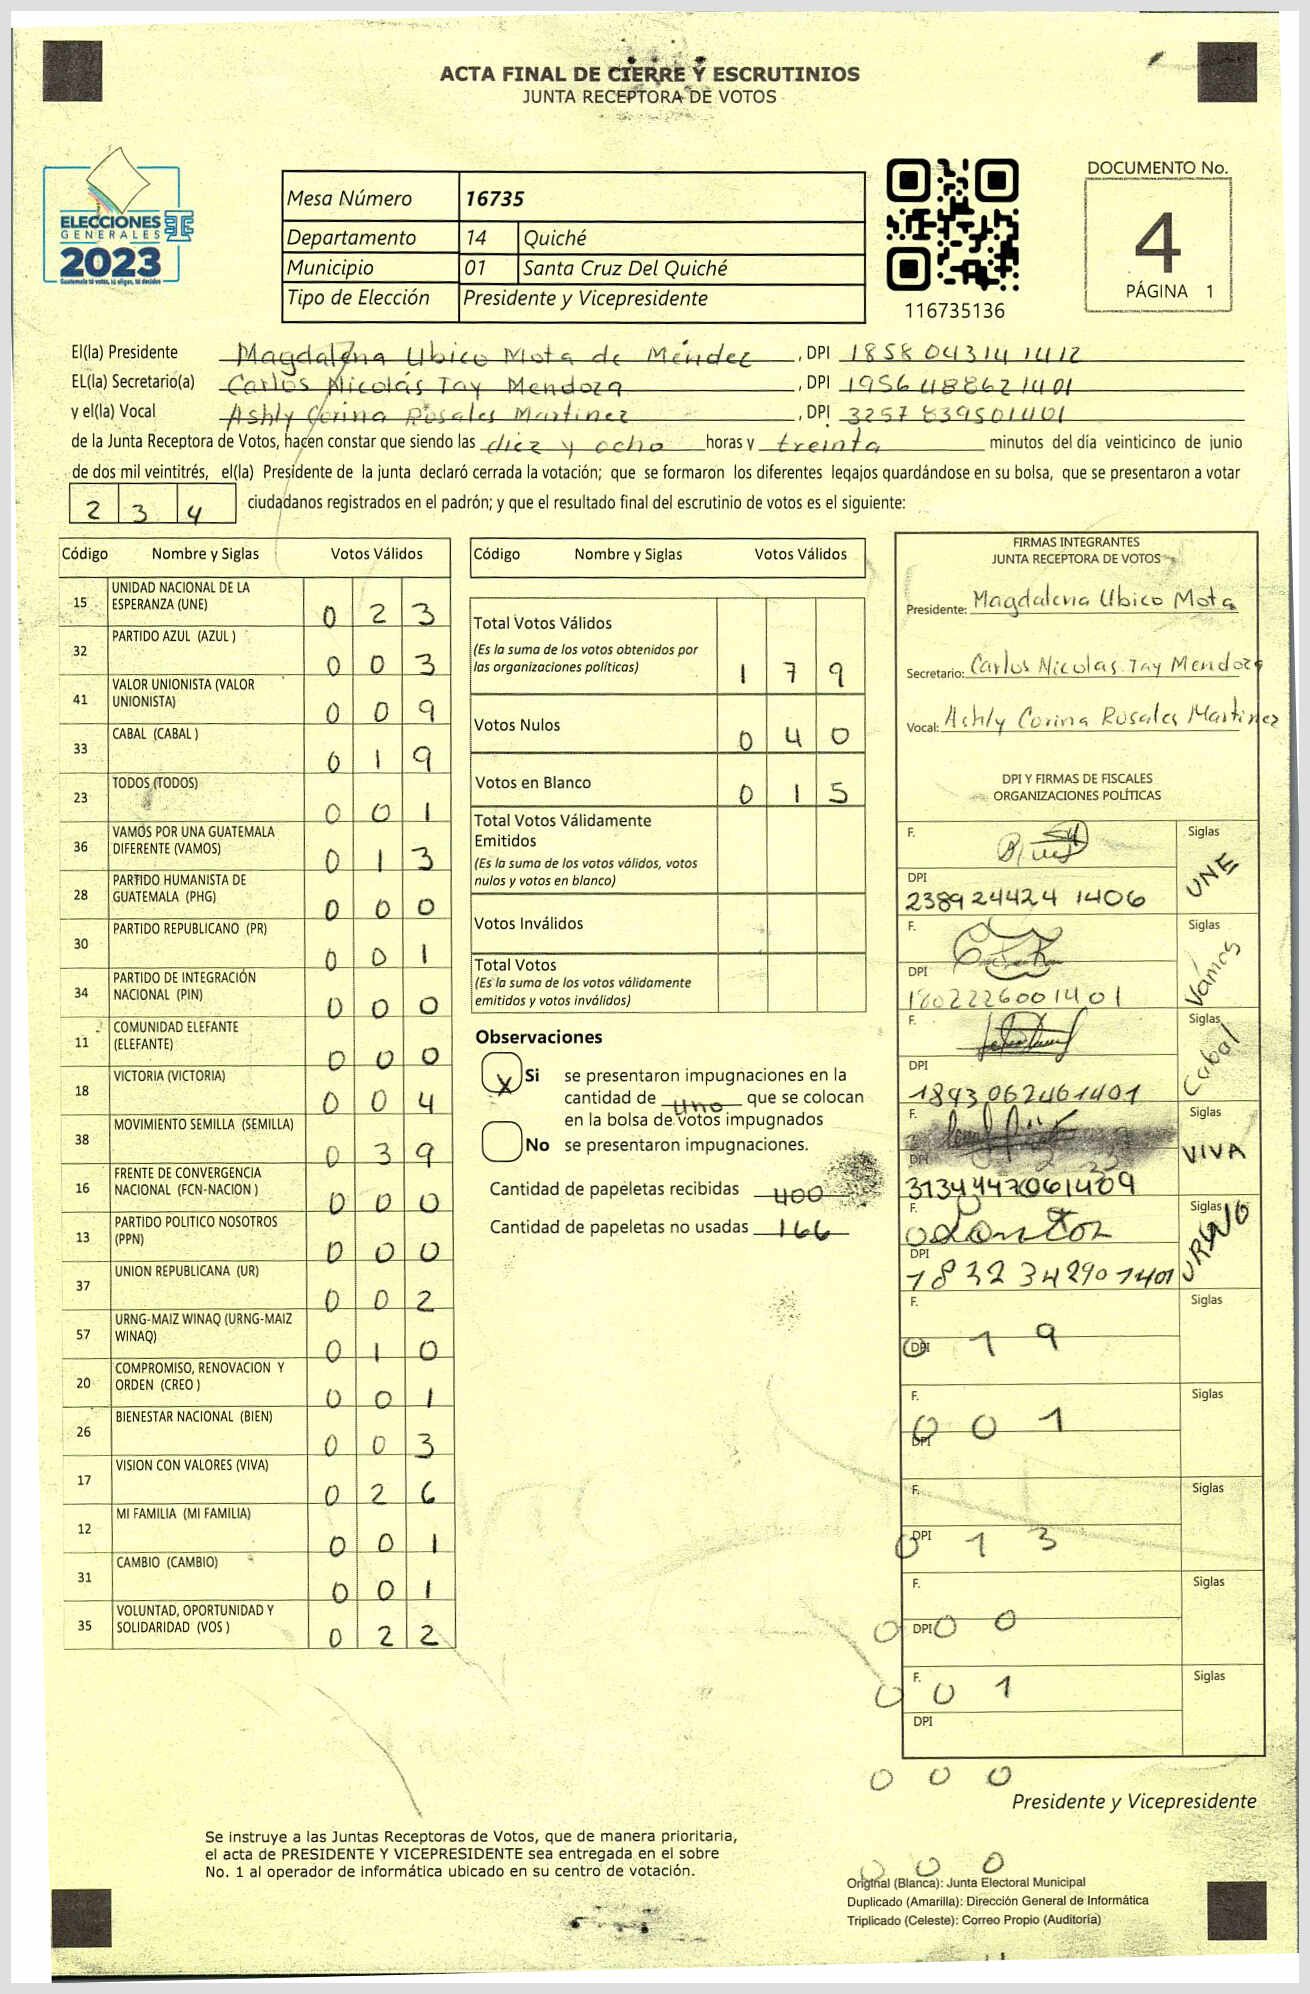 ACTA FINAL DE CIERRE Y ESCRUTINIOS
JUNTA RECEPTORA DE VOTOS
ELECCIONES
GENERALES
2023
Guatemala tú votas, tú eliges, tú decides
Mesa Número 16735
Departamento 14 Quiché
Municipio 01 Santa Cruz Del Quiché
Tipo de Elección Presidente y Vicepresidente
116735136
DOCUMENTO No.
4
PÁGINA 1
El(la) Presidente Magdalena Ubico Mota de Méndez, DPI 1858 04314 1412
EL(la) Secretario(a) Carlos Nicolás Tay Mendoza, DPI 1956 48862 1401
y el(la) Vocal Ashly Corina Rosales Martinez, DPI 3257 83950 1401
de la Junta Receptora de Votos, hacen constar que siendo las diez y ocho horas y treinta minutos del día veinticinco de junio
de dos mil veintitrés, el(la) Presidente de la junta declaró cerrada la votación; que se formaron los diferentes legajos guardándose en su bolsa, que se presentaron a votar
2 3 4 ciudadanos registrados en el padrón; y que el resultado final del escrutinio de votos es el siguiente:
Código Nombre y Siglas Votos Válidos
15 UNIDAD NACIONAL DE LA ESPERANZA (UNE) 0 2 3
32 PARTIDO AZUL (AZUL ) 0 0 3
41 VALOR UNIONISTA (VALOR UNIONISTA) 0 0 9
33 CABAL (CABAL ) 0 1 9
23 TODOS (TODOS) 0 0 1
36 VAMOS POR UNA GUATEMALA DIFERENTE (VAMOS) 0 1 3
28 PARTIDO HUMANISTA DE GUATEMALA (PHG) 0 0 0
30 PARTIDO REPUBLICANO (PR) 0 0 1
34 PARTIDO DE INTEGRACIÓN NACIONAL (PIN) 0 0 0
11 COMUNIDAD ELEFANTE (ELEFANTE) 0 0 0
18 VICTORIA (VICTORIA) 0 0 4
38 MOVIMIENTO SEMILLA (SEMILLA) 0 3 9
16 FRENTE DE CONVERGENCIA NACIONAL (FCN-NACION ) 0 0 0
13 PARTIDO POLITICO NOSOTROS (PPN) 0 0 0
37 UNION REPUBLICANA (UR) 0 0 2
57 URNG-MAIZ WINAQ (URNG-MAIZ WINAQ) 0 1 0
20 COMPROMISO, RENOVACION Y ORDEN (CREO ) 0 0 1
26 BIENESTAR NACIONAL (BIEN) 0 0 3
17 VISION CON VALORES (VIVA) 0 2 6
12 MI FAMILIA (MI FAMILIA) 0 0 1
31 CAMBIO (CAMBIO) 0 0 1
35 VOLUNTAD, OPORTUNIDAD Y SOLIDARIDAD (VOS ) 0 2 2
Código Nombre y Siglas Votos Válidos
Total Votos Válidos
(Es la suma de los votos obtenidos por
las organizaciones políticas) 1 7 9
Votos Nulos 0 4 0
Votos en Blanco 0 1 5
Total Votos Válidamente
Emitidos
(Es la suma de los votos válidos, votos
nulos y votos en blanco)
Votos Inválidos
Total Votos
(Es la suma de los votos válidamente
emitidos y votos inválidos)
Observaciones
X Si se presentaron impugnaciones en la
cantidad de uno que se colocan
en la bolsa de votos impugnados
No se presentaron impugnaciones.
Cantidad de papeletas recibidas 400
Cantidad de papeletas no usadas 166
FIRMAS INTEGRANTES
JUNTA RECEPTORA DE VOTOS
Presidente: Magdalena Ubico Mota
Secretario: Carlos Nicolas Tay Mendoza
Vocal: Ashly Corina Rosales Martinez
DPI Y FIRMAS DE FISCALES
ORGANIZACIONES POLÍTICAS
F. Siglas UNE
DPI 238924424 1406
F. Siglas Vamos
DPI 1802226001401
F. Siglas Cabal
DPI 1893062461401
F. Siglas VIVA
DPI 3134447061409
F. Siglas
DPI 1832342901401
F. Siglas
DPI 0 1 9
F. Siglas
0 0 1
DPI
F. Siglas
DPI 0 1 3
F. Siglas
DPI 0 0 0
F. Siglas
0 0 1
DPI
0 0 0
Presidente y Vicepresidente
0 0 0
Se instruye a las Juntas Receptoras de Votos, que de manera prioritaria,
el acta de PRESIDENTE Y VICEPRESIDENTE sea entregada en el sobre
No. 1 al operador de informática ubicado en su centro de votación.
Original (Blanca): Junta Electoral Municipal
Duplicado (Amarilla): Dirección General de Informática
Triplicado (Celeste): Correo Propio (Auditoría)